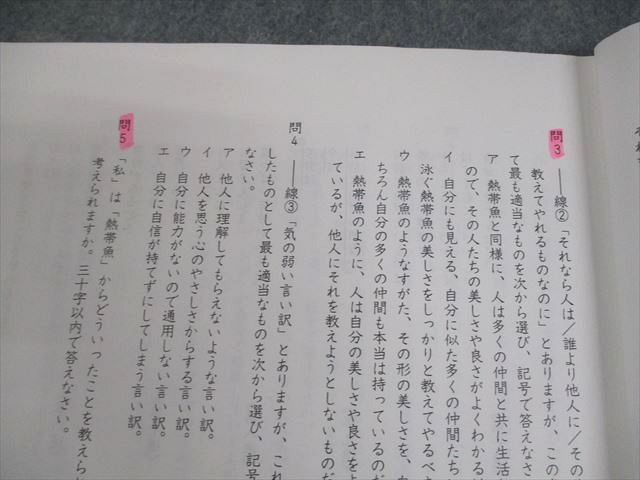 問3 ――線②「それなら人は／誰より他人に／その
教えてやれるものなのに」とありますが、この
て最も適当なものを次から選び、記号で答えなさ
ア 熱帯魚と同様に、人は多くの仲間と共に生活
ので、その人たちの美しさや良さがよくわかる
イ 自分にも見える、自分に似た多くの仲間たち
泳ぐ熱帯魚の美しさをしっかりと教えてやるべ
ウ 熱帯魚のようなすがた、その形の美しさを、
ちろん自分の多くの仲間も本当は持っているのだ
エ 熱帯魚のように、人は自分の美しさや良さを
ているが、他人にそれを教えようとしないものだ
問4 ――線③「気の弱い言い訳」とありますが、これ
したものとして最も適当なものを次から選び、記号
なさい。
ア 他人に理解してもらえないような言い訳。
イ 他人を思う心のやさしさからする言い訳。
ウ 自分に能力がないので通用しない言い訳。
エ 自分に自信が持てずにしてしまう言い訳。
問5 「私」は「熱帯魚」からどういったことを教えら
考えられますか。三十字以内で答えなさい。